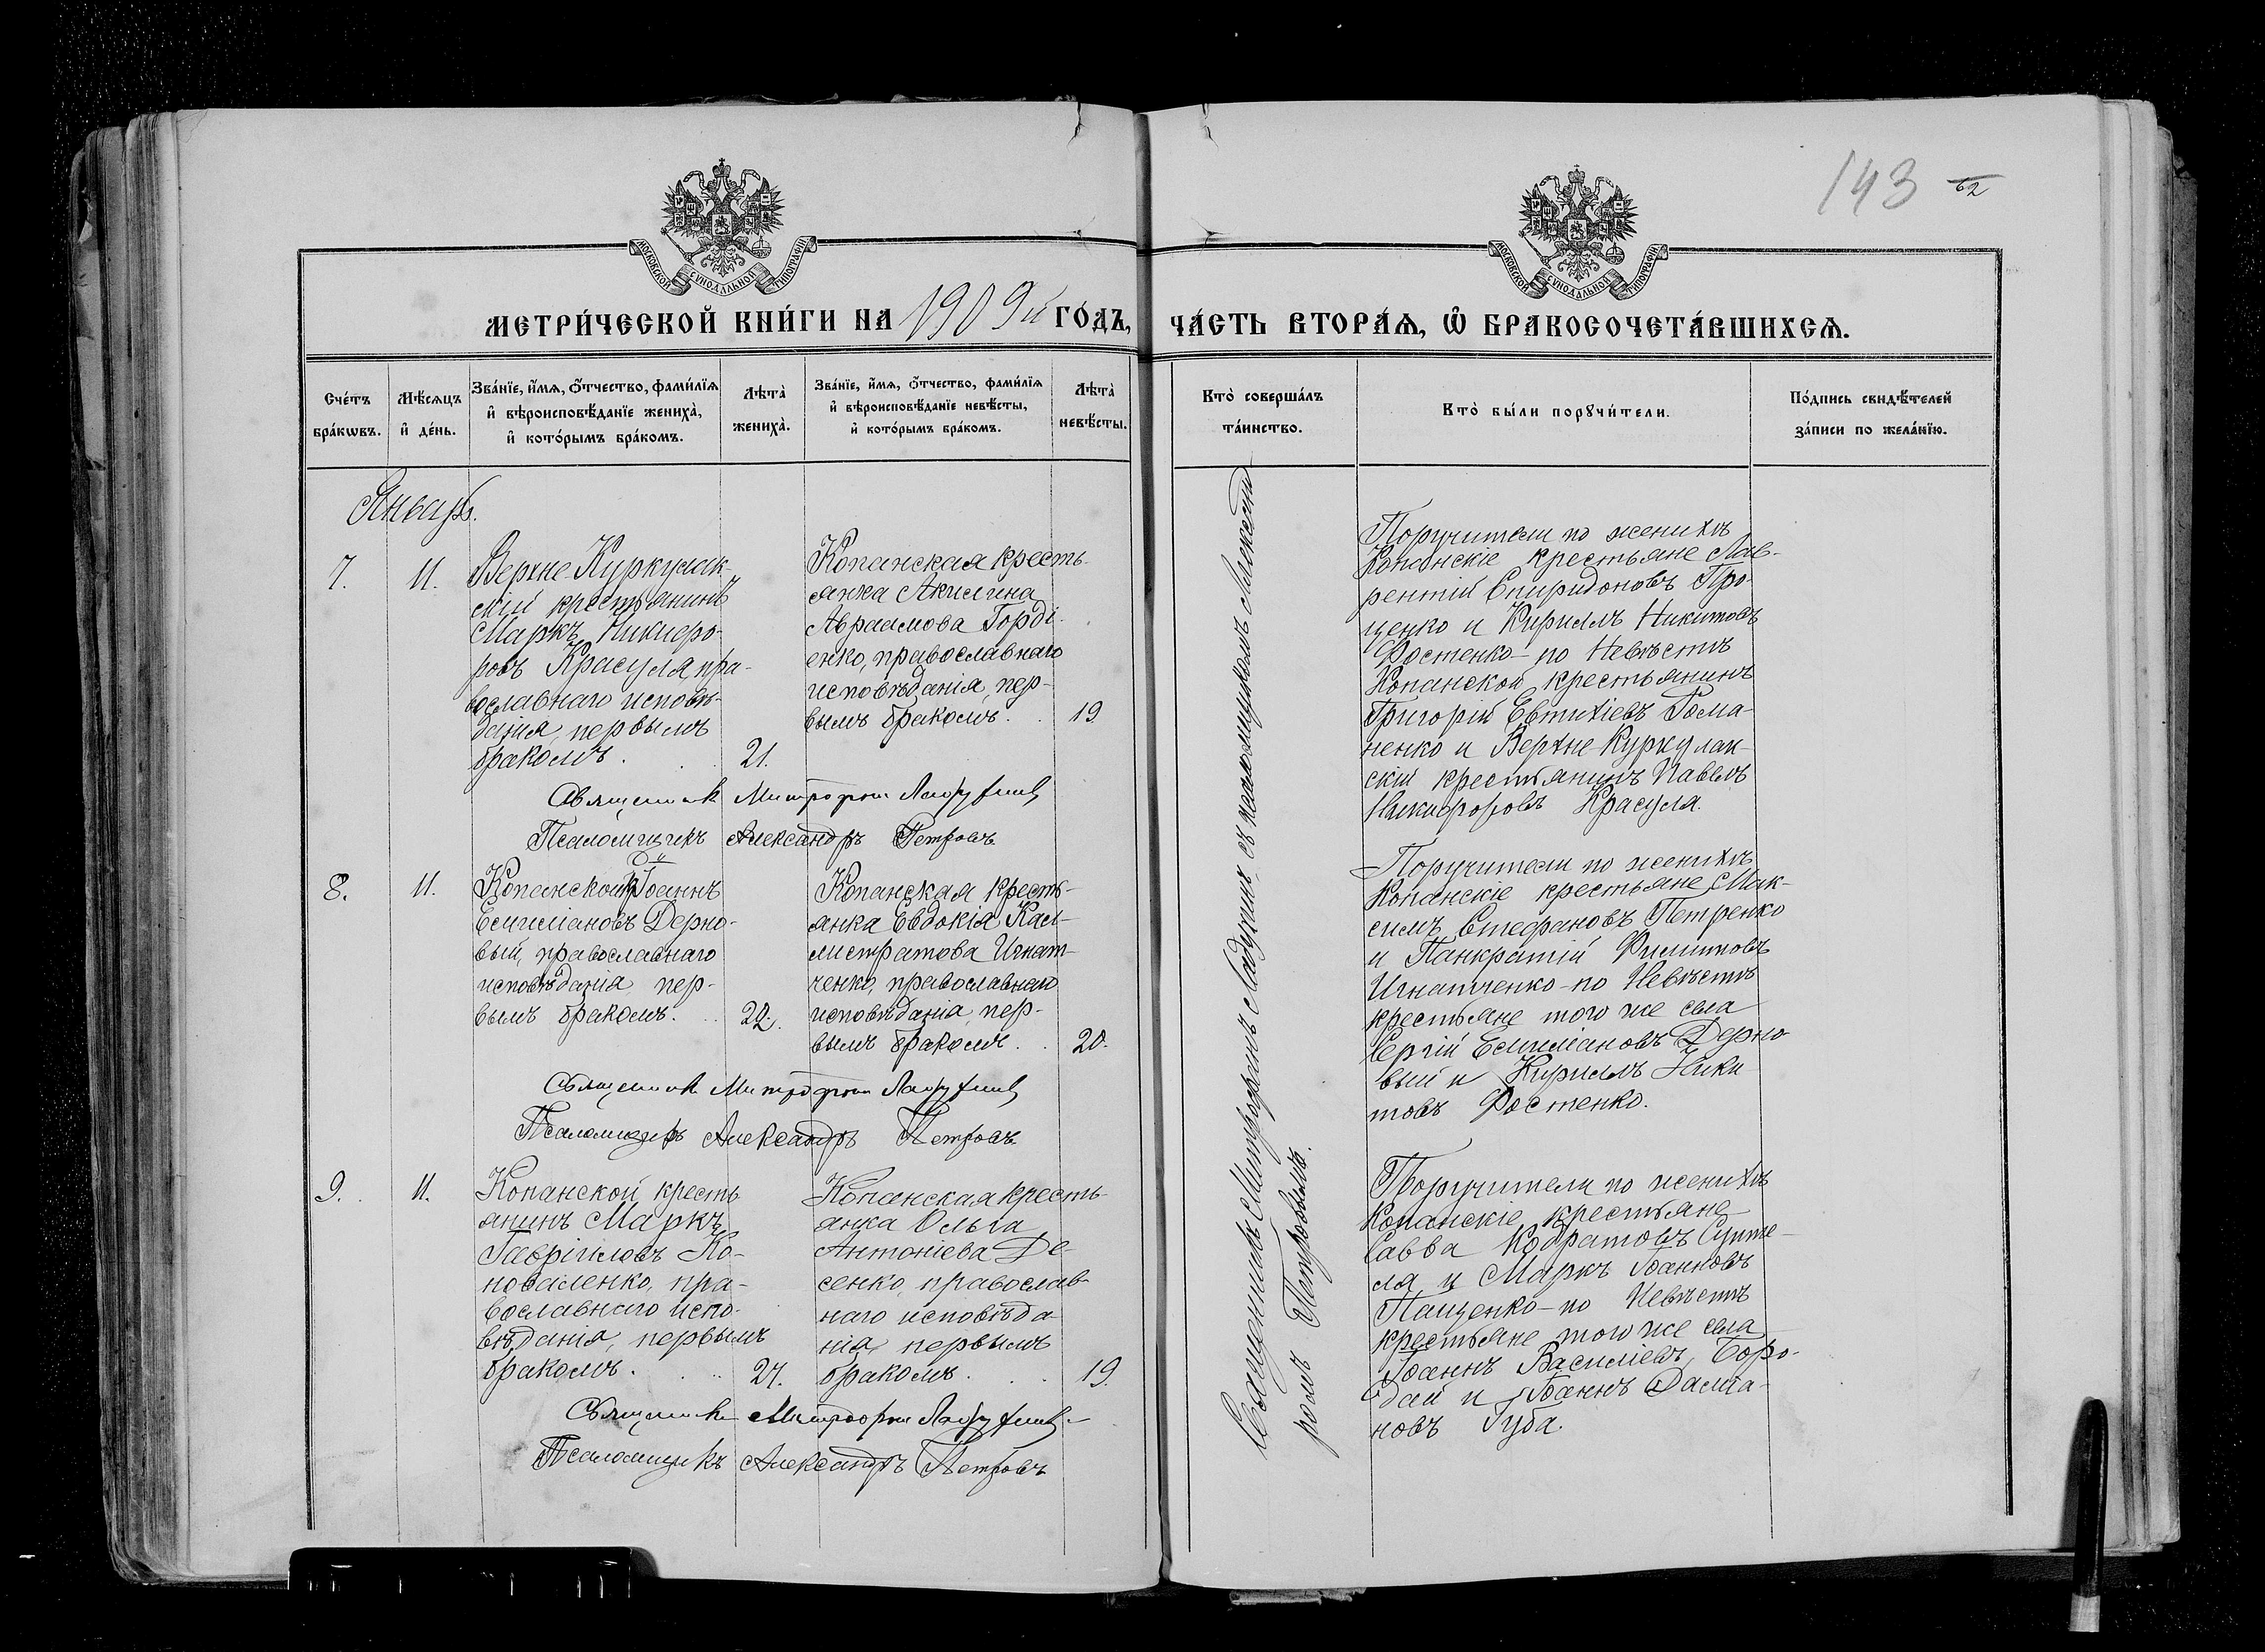 143 62
МОСКОВСКОЙ СѴНОДАЛЬНОЙ ТИПОГРАФІИ
МОСКОВСКОЙ СѴНОДАЛЬНОЙ ТИПОГРАФІИ
МЕТРИ́ЧЕСКОЙ КНИ́ГИ НА 1909й ГО́ДЪ, ЧА́СТЬ ВТОРА́Ѧ, Ѽ БРАКОСОЧЕТА́ВШИХСѦ.
Сче́тъ бра́кѡвъ.
Мѣ́сѧцъ и҆ де́нь.
Зва́нїе, и҆́мѧ, ѻ҆́тчество, фами́лїѧ
и҆ вѣроисповѣ́данїе жениха̀,
и҆ кото́рымъ бра́комъ.
Лѣта̀
жениха̀.
Зва́нїе, и҆́мѧ, ѻ҆́тчество, фами́лїѧ
и҆ вѣроисповѣ́данїе невѣ́сты,
и҆ кото́рымъ бра́комъ.
Лѣта̀
невѣ́сты.
Кто̀ соверша́лъ
та́инство.
Кто̀ бы́ли порꙋчи́тели.
По́дпись свидѣ́телей
за́писи по жела́нїю.
Январь.
7.
11.
Верхне-Куркулак-
скій крестьянинъ
Маркъ Никифо-
ровъ Красуля, пра-
вославнаго исповѣ-
данія, первымъ
бракомъ.
21.
Копанская кресть-
янка Акилина
Авраамова Горді-
енко, православнаго
исповѣданія, пер-
вымъ бракомъ.
19.
Поручители по женихѣ
Копанскіе крестьяне Лав-
рентій Спиридоновъ Про-
ценко и Кириллъ Никитовъ
Фостенко - по Невѣстѣ
Копанской крестьянинъ
Григорій Евтихіевъ Рома-
ненко и Верхне-Куркулак-
скій крестьянинъ Павелъ
Никифоровъ Красуля.
Священник Митрофан
Псаломщикъ Александръ Петровъ
8.
11.
Копанской Іоаннъ
Емиліановъ Дерно-
вый, православнаго
исповѣданія пер-
вымъ бракомъ.
22.
Копанская кресть-
янка Евдокія Кал-
листратова Игнат-
ченко, православнаго
исповѣданія, пер-
вымъ бракомъ.
20.
Поручители по женихѣ
Копанскіе крестьяне Мак-
симъ Стефановъ Петренко
и Панкратій Филиповъ
Игнатченко - по Невѣстѣ
крестьяне того же села
Сергій Емиліановъ Дерно-
вый и Кириллъ Ники-
товъ Фостенко.
Священник Митрофан
Псаломщикъ Александръ Петровъ
9.
11.
Копанской кресть
янинъ Маркъ
Гавріиловъ Ко-
новаленко, пра-
вославнаго испо-
вѣданія, первымъ
бракомъ.
24.
Копанская кресть-
янка Ольга
Антоніева Де-
сенко, православ-
наго исповѣда-
нія, первымъ
бракомъ.
19.
Поручители по женихѣ
Копанскіе крестьяне
Савва Кодратовъ
ля и Маркъ Іоанновъ
Пащенко - по Невѣстѣ
крестьяне того же села
Іоаннъ Василіевъ Боро-
дай и Іоаннъ Даміа-
новъ Губа.
Священник Митрофан
Псаломщикъ Александръ Петровъ
Священникъ Митрофанъ съ псаломщикомъ Александ
ромъ Петровымъ.